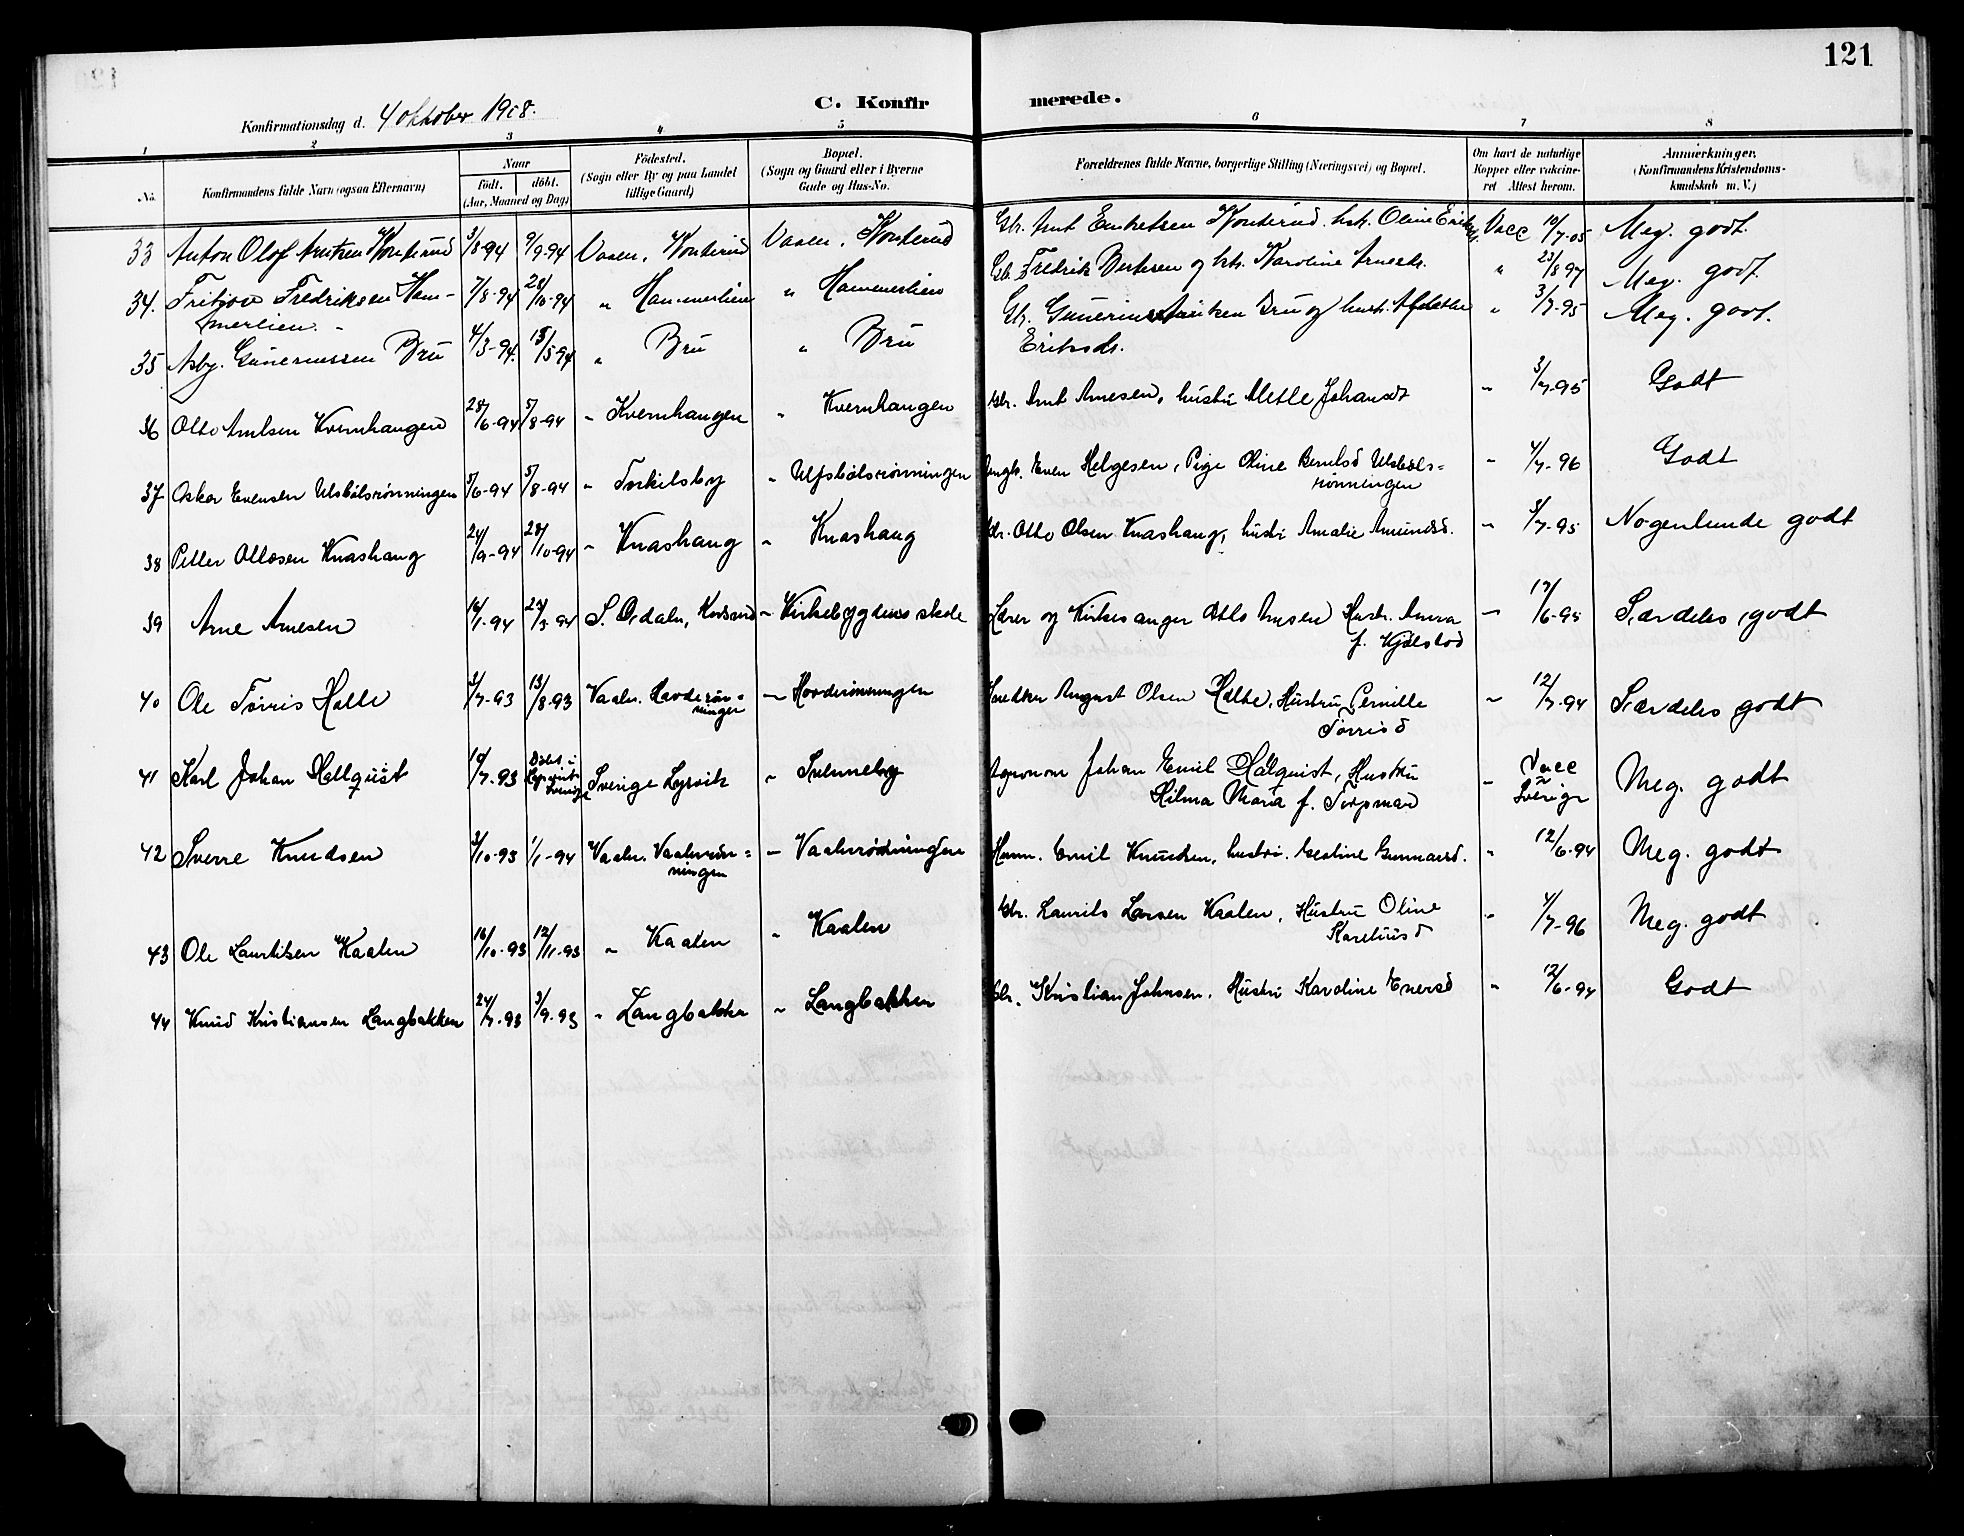 121
C. Konfirmerede.
Konfirmationsdag d. 4 oktober 1908.
1 2 3 4 5 6 7 8
No. Konfirmandens fulde Navn (ogsaa Efternavn) Naar födt. döbt. (Aar, Maaned og Dag) Födested. (Sogn eller By og paa Landet tillige Gaard) Bopæl. (Sogn og Gaard eller i Byerne Gade og Hus-No. Forældrenes fulde Navne, borgerlige Stilling (Næringsvei) og Bopæl. Om havt de naturlige Kopper eller vakcineret Attest herom. Anmærkninger. (Konfirmandens Kristendomskundskab m. V.)
33 Anton Olof Arntsen Konterud 3/8-94 9/9-94 Vaaler, Konterud Vaaler, Konterud Gbr. Arnt Embretsen Konterud, hst. Oline Eriksd. Vacc 10/7-05 Meg. godt.
34. Fritjov Fredriksen Ham- 7/8-94 28/10-94 " Hammerlien " Hammerlien Gb. Fredrik Berntsen og hst. Karoline Arnesd. " 23/8 97 Meg. godt.
merlien.
35 Asbj. Gunerussen Bru 4/3-94. 13/5-94 " Bru " Bru Gbr. Gunerius Bru og hustr. " 3/7-95 Meg. godt.
Eriksd.
36 Otto Arntsen Kvernhaugen 28/6-94 5/8-94 " Kvernhaugen " Kvernhaugen Gbr. Arnt Arnesen, hustru Mette Johansd " 3/7-95 Godt
37 Oskar Evensen Ulsbölsrönningen 5/6-94 5/8-94 " Torkilsby " Ulfsbölsrönningen Ungk. Even Helgesen, Pige Oline Berntsd Ulsböls=
rönningen " 4/7-96 Godt
38 Petter Ottosen Knashaug 24/9-94 28/10-94 " Knashaug " Knashaug Gbr. Otto Olsen Knashaug, hustr Amalie Amundsd. " 3/7-95 Nogenlunde godt
39 Arne Arnesen 16/1-94 27/3 94 S. Odalen, Korsmo " Kirkebygdens skole Lærer og Kirkesanger Otto Arnesen Hustr. Anna " 17/6-95 Særdeles godt
f. Kjölstad
40 Ole Törris Holte 3/7-93 13/8-93 Vaaler. Havderön=
ninger " Hovderönningen Snedker August Olsen Holte, Hustru Pernille " 12/7-94 Særdeles godt
Törrisd
41 Karl Johan Hellquist 10/7-93 Döbt i Lysvik Sverige Sverige Lysvik " Svenneby Agronom Johan Emil Hälquist, Hustru " Vacc i Sverige Meg. godt
Hilma Maria f. Torpman
42 Sverre Knudsen 3/10-93 1/1-94 Vaaler. Vaalerrön=
ningen " Vaalerrönningen Hmm. Emil Knudsen, hustru. Gustine Gunnarsd. " 12/6-94 Meg. godt
43 Ole Lauritsen Kaalen 16/10-93 12/11-93 " Kaalen " Kaalen Gbr. Laurits Larsen Kaalen, Hustru Oline " 4/7-96 Meg. godt
Kareliusd
44 Knud Kristiansen Langbakken 24/7-93 3/9-93 " Langbakken " Langbakken Gbr. Kristian Johnsen. Hustru Karoline Enersd " 12/6-94 Godt